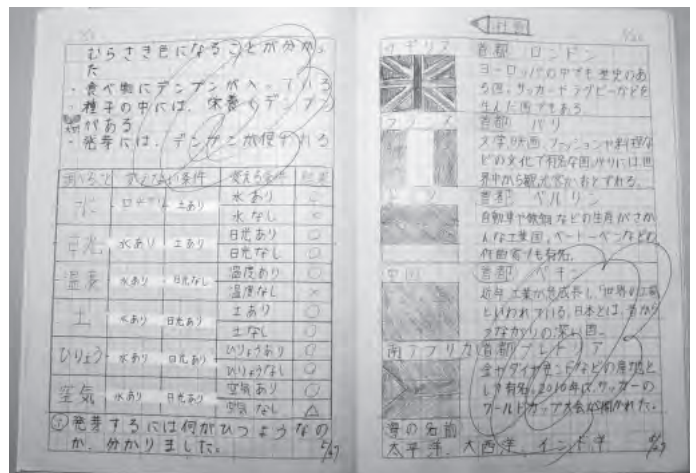 むらさき色になることが分かっ
た
・食べ物にデンプンが入っている
・種子の中には、栄養(デンプン)
がある
・発芽には、デンプンが使われる
変えない条件 変える条件 結果
水 土あり 水あり
水なし ×
日光 水あり 土あり 日光あり ○
日光なし ○
温度 水あり 日光なし 温度あり ○
温度なし ×
土 水あり 日光あり 土あり ○
土なし ○
ひりょう 水あり 日光あり ひりょうあり ○
ひりょうなし ○
空気 水あり 日光あり 空気あり ○
空気なし △
発芽するには何がひつようなの
か、分かりました。
5/27
社会
イギリス 首都 ロンドン
ヨーロッパの中でも歴史のあ
る国。サッカーやラグビーなどを
生んだ国でもある。
フランス 首都 パリ
文学、映画、ファッションや料理な
どの文化で有名な国。パリには世
界中から観光客がおとずれる。
ドイツ 首都 ベルリン
自動車や鉄鋼などの生産がさか
んな工業国。ベートーベンなどの
作曲家でも有名。
中国 首都 ペキン
近年、工業が急成長し、「世界の工場」
といわれている。日本とは、昔から
つながりの深い国。
南アフリカ 首都 プレトリア
金やダイヤモンドなどの産地と
して有名。2010年は、サッカーの
ワールドカップ大会が開かれた。
海の名前
太平洋、大西洋、インド洋